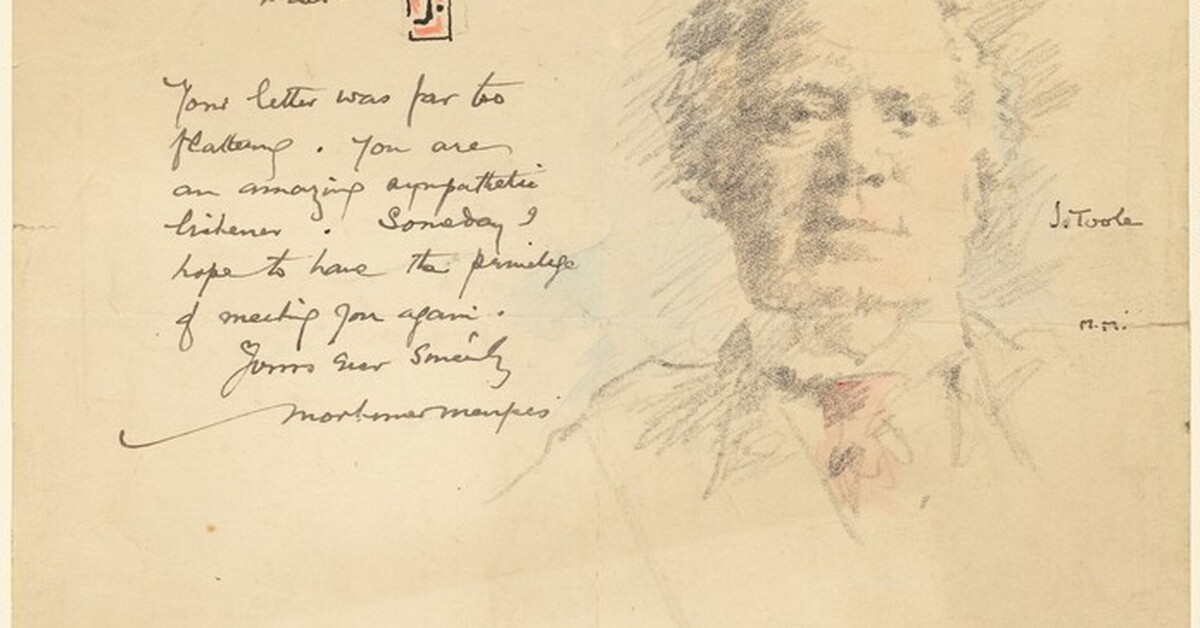 J.
Your letter was far too
flattering . You are
an amazing sympathetic
listener . Someday I
hope to have the privilege
of meeting you again .
Yours ever sincerely
Mortimer Menpes
J. Toole
M.M.